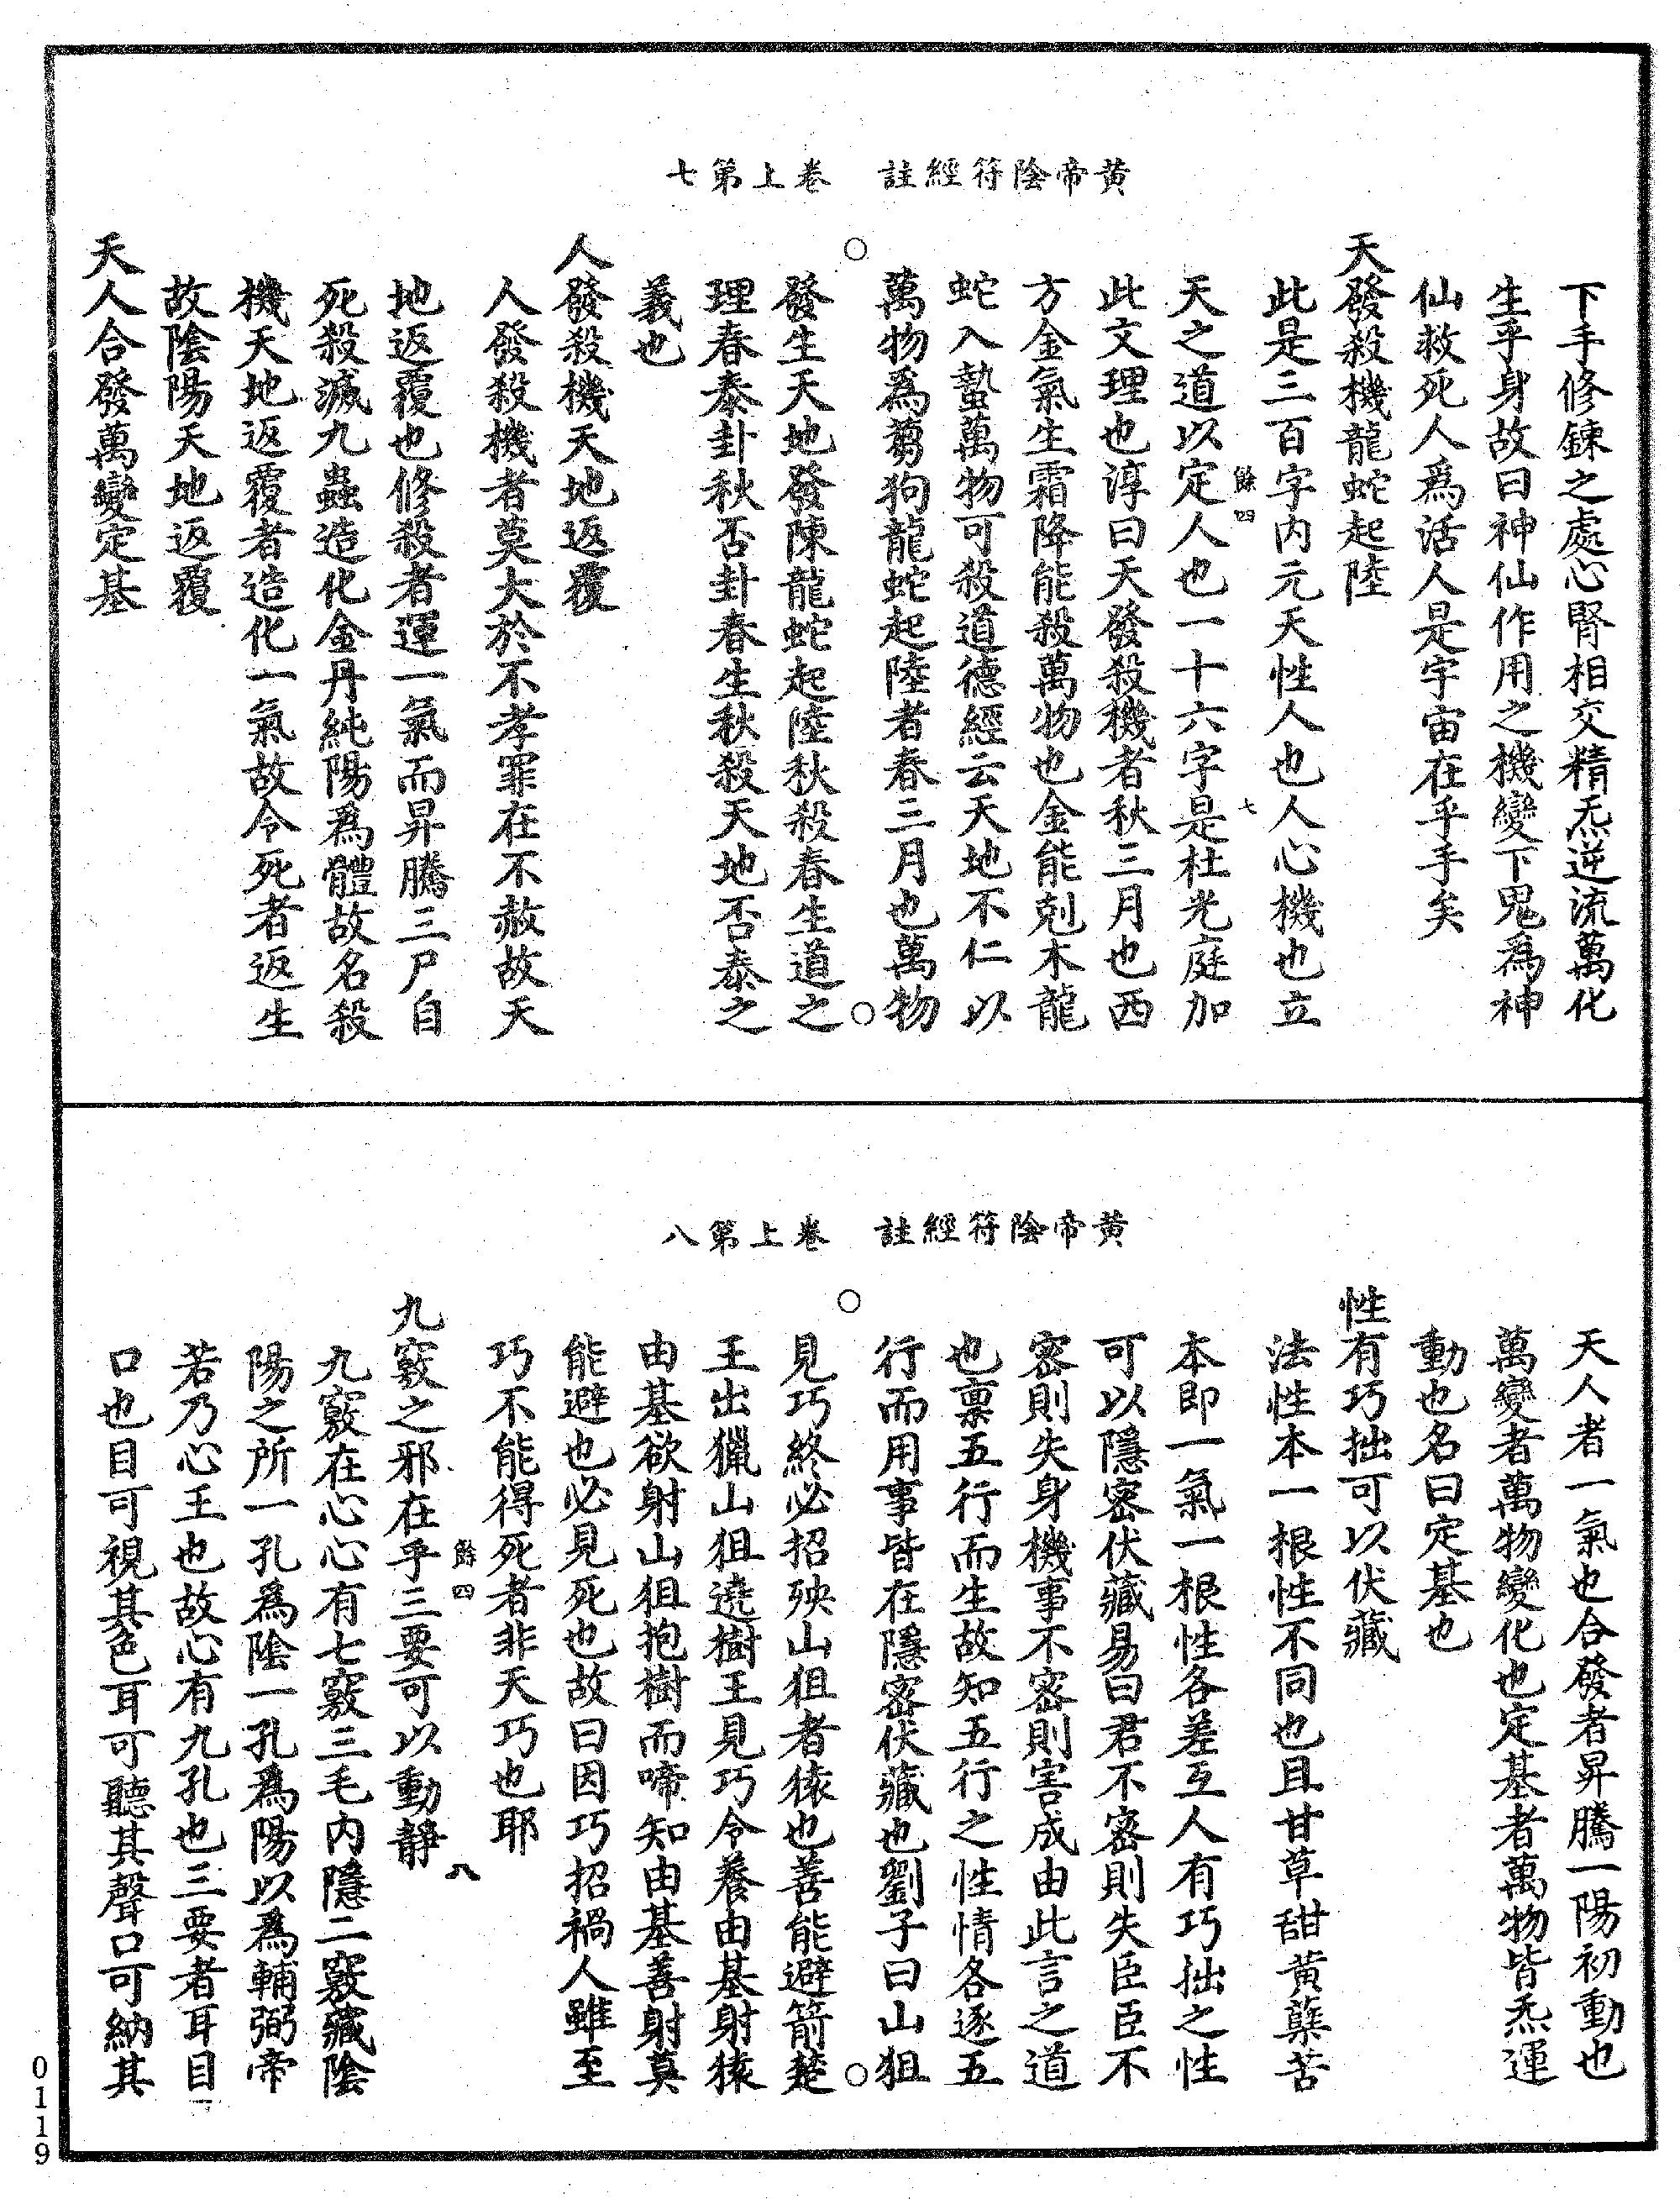 黄帝陰符經註　卷上第七
下手修鍊之處心腎相交精炁逆流萬化
生乎身故曰神仙作用之機變下鬼為神
仙救死人為活人是宇宙在乎手矣
天發殺機龍蛇起陸
此是三百字內元天性人也人心機也立
餘四　七
天之道以定人也一十六字是杜光庭加
此文理也淳曰天發殺機者秋三月也西
方金氣生霜降能殺萬物也金能剋木龍
蛇入蟄萬物可殺道德經云天地不仁以
萬物為芻狗龍蛇起陸者春三月也萬物
發生天地發陳龍蛇起陸秋殺春生道之
理春泰卦秋否卦春生秋殺天地否泰之
義也
人發殺機天地返覆
人發殺機者莫大於不孝罪在不赦故天
地返覆也修殺者運一氣而昇騰三尸自
死殺滅九蟲造化金丹純陽為體故名殺
機天地返覆者造化一氣故令死者返生
故陰陽天地返覆
天人合發萬變定基
黄帝陰符經註　卷上第八
天人者一氣也合發者昇騰一陽初動也
萬變者萬物變化也定基者萬物皆炁運
動也名曰定基也
性有巧拙可以伏藏
法性本一根性不同也且甘草甜黄蘗苦
本即一氣一根性各差互人有巧拙之性
可以隱密伏藏易曰君不密則失臣臣不
密則失身機事不密則害成由此言之道
也稟五行而生故知五行之性情各逐五
行而用事皆在隱密伏藏也劉子曰山狙
見巧終必招殃山狙者猿也善能避箭楚
王出獵山狙遶樹王見巧令養由基射猿
由基欲射山狙抱樹而啼知由基善射莫
能避也必見死也故曰因巧招禍人雖至
巧不能得死者非天巧也耶
九竅之邪在乎三要可以動靜
餘四　八
九竅在心心有七竅三毛內隱二竅藏陰
陽之所一孔為陰一孔為陽以為輔弼帝
若乃心王也故心有九孔也三要者耳目
口也目可視其色耳可聽其聲口可納其
0119